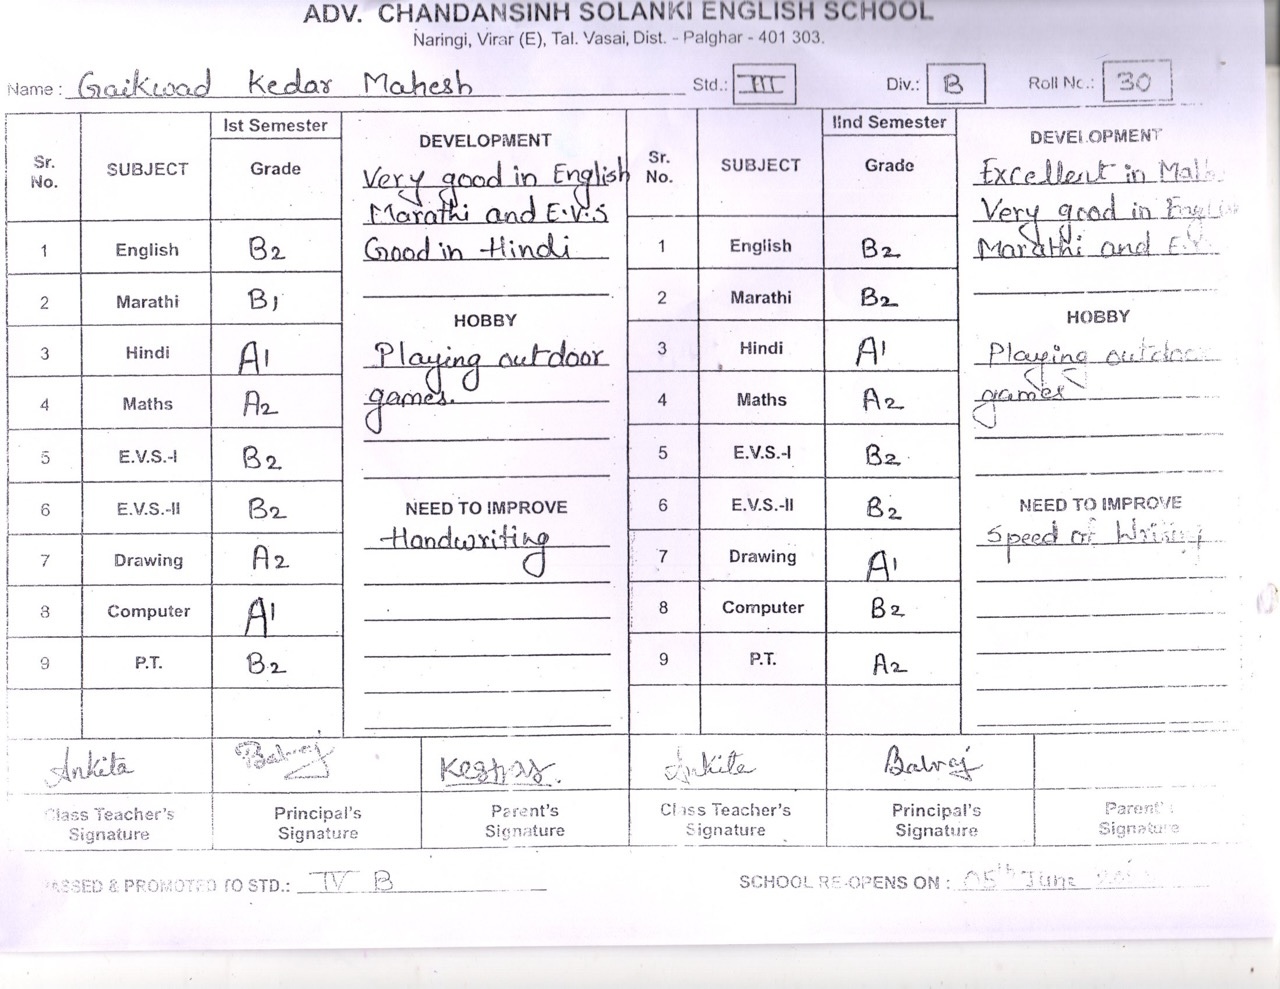 ADV. CHANDANSINH SOLANKI ENGLISH SCHOOL
Naringi, Virar (E), Tal. Vasai, Dist. - Palghar - 401 303.
Name : Gaikwad Kedar Mahesh Std.: III Div.: B Roll No.: 30
Sr. No. SUBJECT Ist Semester Grade
1 English B2
2 Marathi B1
3 Hindi A1
4 Maths A2
5 E.V.S.-I B2
6 E.V.S.-II B2
7 Drawing A2
8 Computer A1
9 P.T. B2
DEVELOPMENT
Very good in English
Marathi and E.V.S
Good in Hindi
HOBBY
Playing outdoor
games.
NEED TO IMPROVE
Handwriting
Sr. No. SUBJECT IInd Semester Grade
1 English B2
2 Marathi B2
3 Hindi A1
4 Maths A2
5 E.V.S.-I B2
6 E.V.S.-II B2
7 Drawing A1
8 Computer B2
9 P.T. A2
DEVELOPMENT
Excellent in
Very good in
Marathi and
HOBBY
Playing
games
NEED TO IMPROVE
Speed of Writing
Ankita Balraj Ankita Balraj
Class Teacher's Signature
Principal's Signature
Parent's Signature
Class Teacher's Signature
Principal's Signature
Parent's Signature
PASSED & PROMOTED TO STD.: IV B
SCHOOL RE-OPENS ON : 05th June